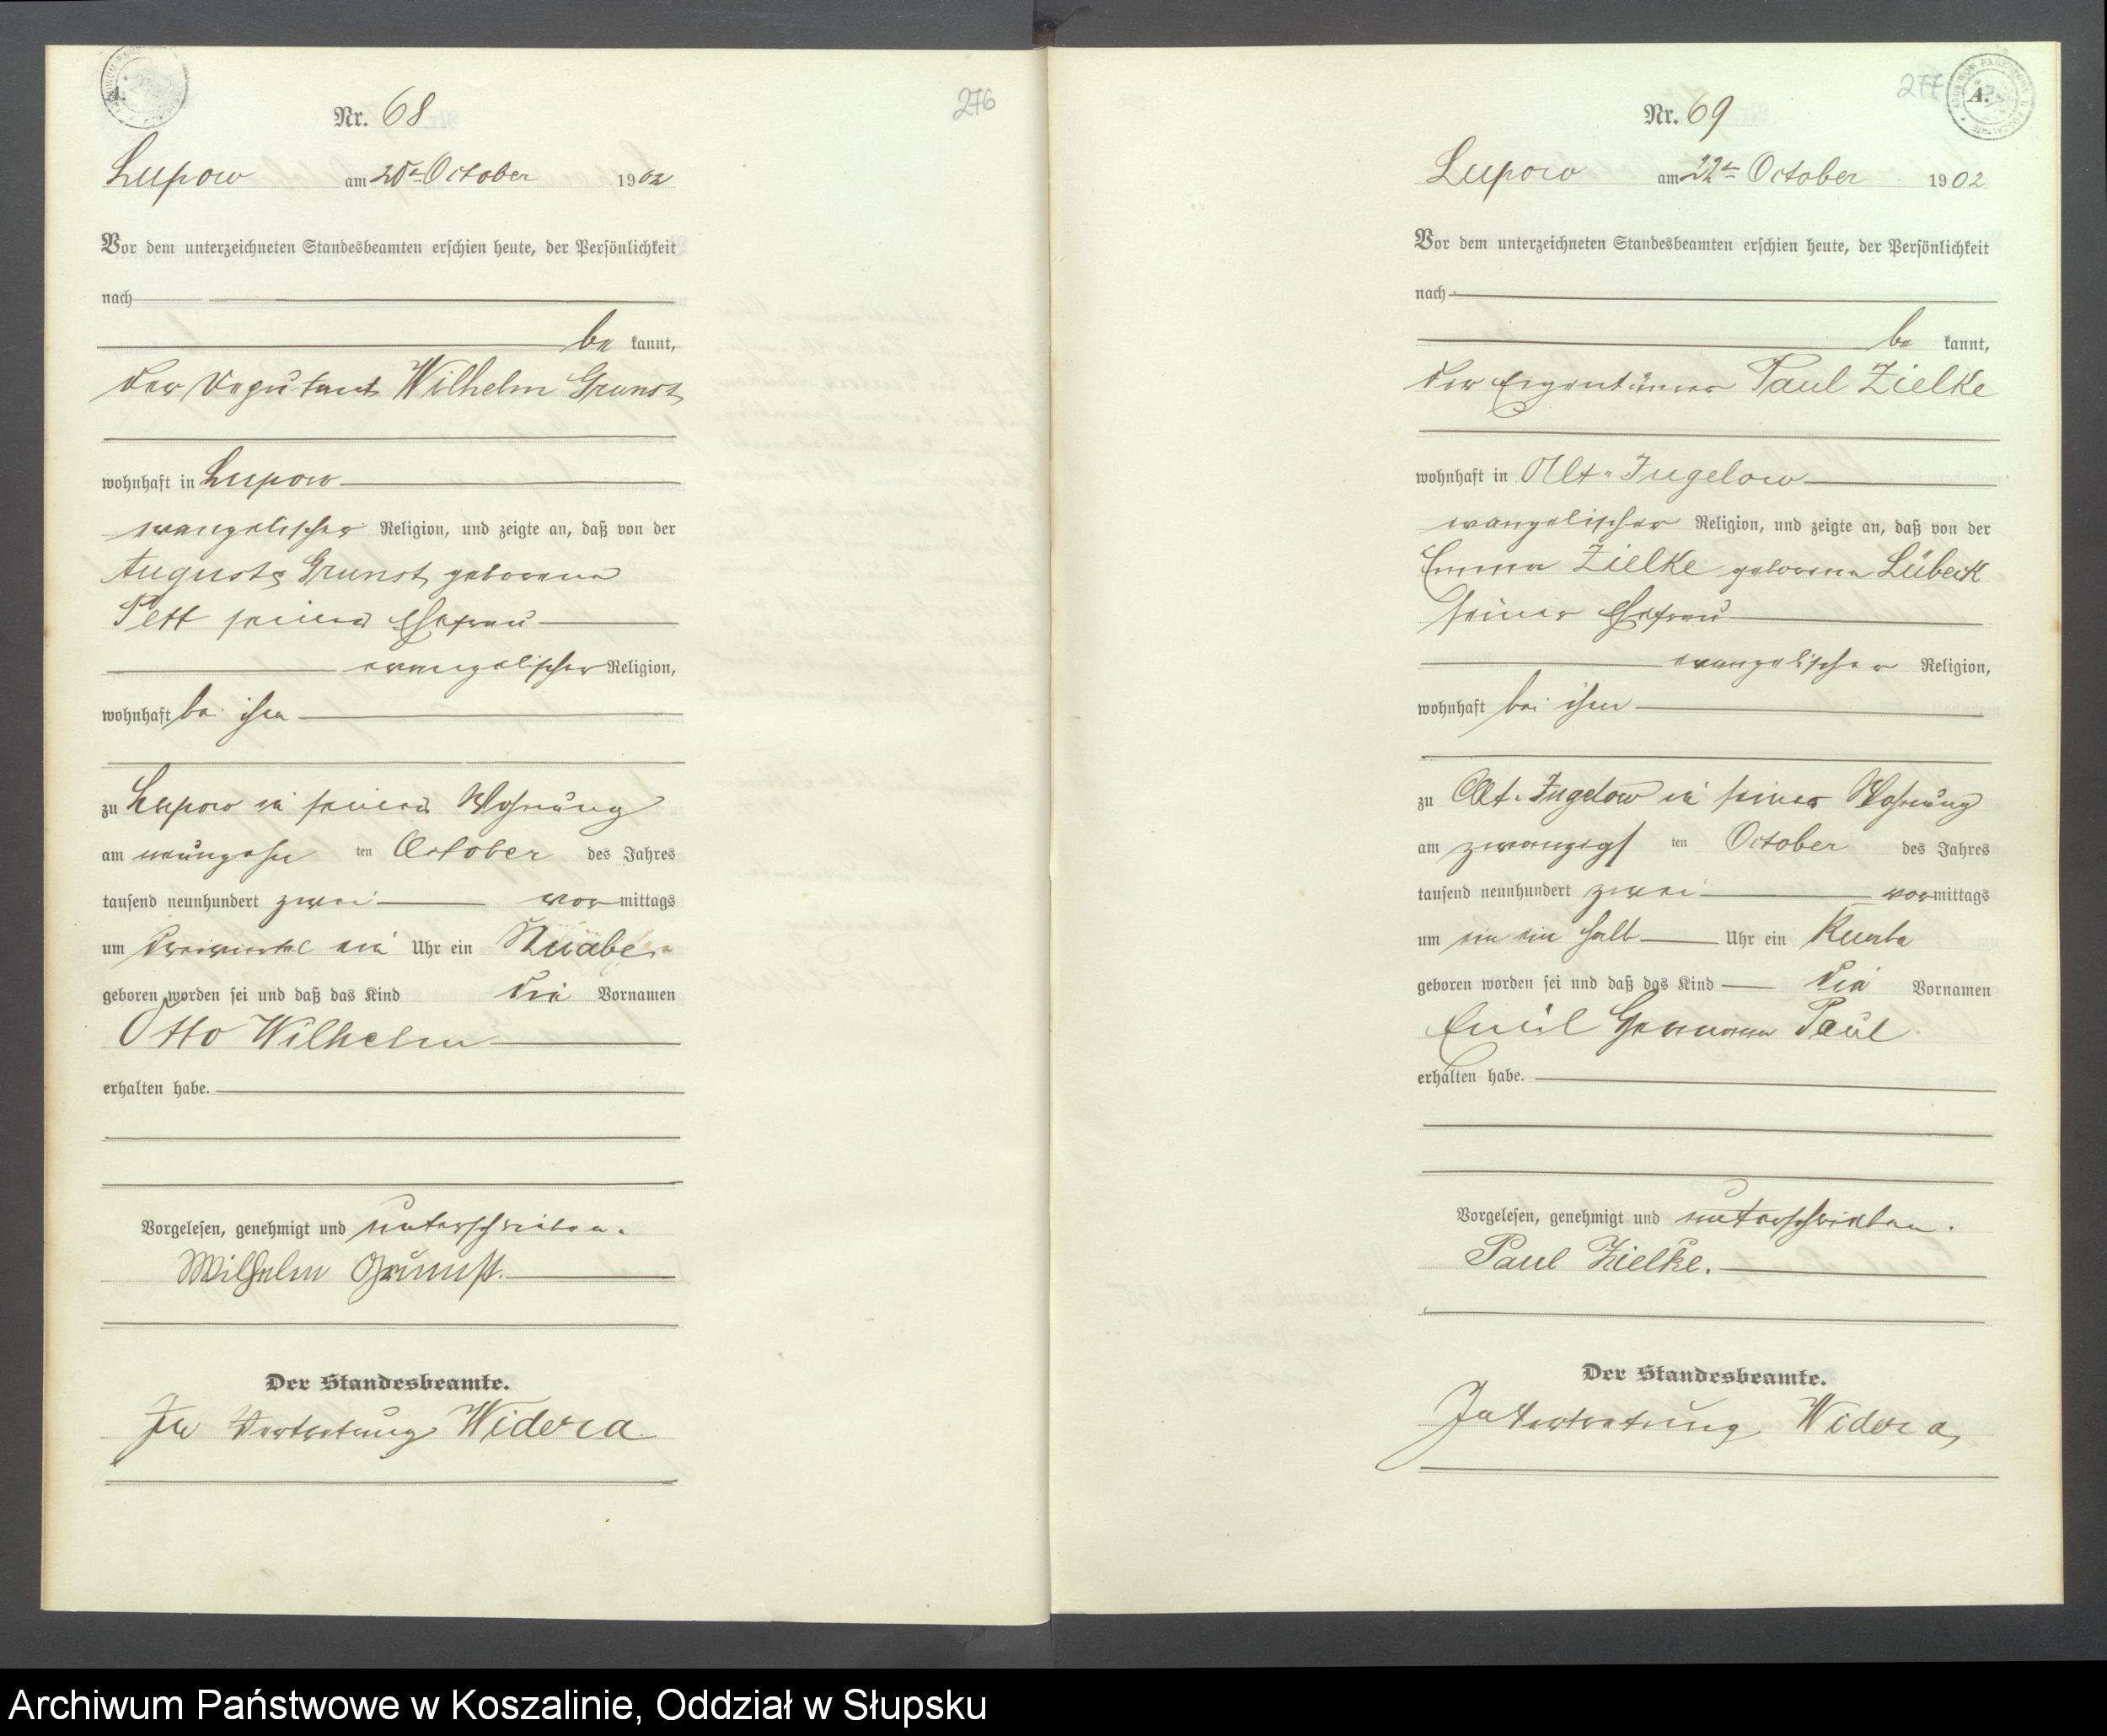 Nr. 68
276
Lupow am 20ten October 1902
Vor dem unterzeichneten Standesbeamten erschien heute, der Persönlichkeit
nach
be kannt,
der Deputant Wilhelm Grunst
wohnhaft in Lupow
evangelischer Religion, und zeigte an, daß von der
Auguste Grunst geborene
Pett seiner Ehefrau
evangelischer Religion,
wohnhaft bei ihm
zu Lupow in seiner Wohnung
am neunzehn ten October des Jahres
tausend neunhundert zwei vor mittags
um dreiviertel ein Uhr ein Knabe
geboren worden sei und daß das Kind die Vornamen
Otto Wilhelm
erhalten habe.
Vorgelesen, genehmigt und unterschrieben.
Wilhelm Grunst.
Der Standesbeamte.
In Vertretung Widera
277
A.
Nr. 69
Lupow am 22ten October 1902
Vor dem unterzeichneten Standesbeamten erschien heute, der Persönlichkeit
nach
be kannt,
der Eigentümer Paul Zielke
wohnhaft in Alt-Jugelow
evangelischer Religion, und zeigte an, daß von der
Emma Zielke geborene Lübeck
seiner Ehefrau
evangelischer Religion,
wohnhaft bei ihm
zu Alt-Jugelow in seiner Wohnung
am zwanzigs ten October des Jahres
tausend neunhundert zwei vormittags
um ein ein halb Uhr ein Knabe
geboren worden sei und daß das Kind die Vornamen
Emil Hermann Paul
erhalten habe.
Vorgelesen, genehmigt und unterschrieben.
Paul Zielke.
Der Standesbeamte.
In Vertretung Widera
Archiwum Państwowe w Koszalinie, Oddział w Słupsku